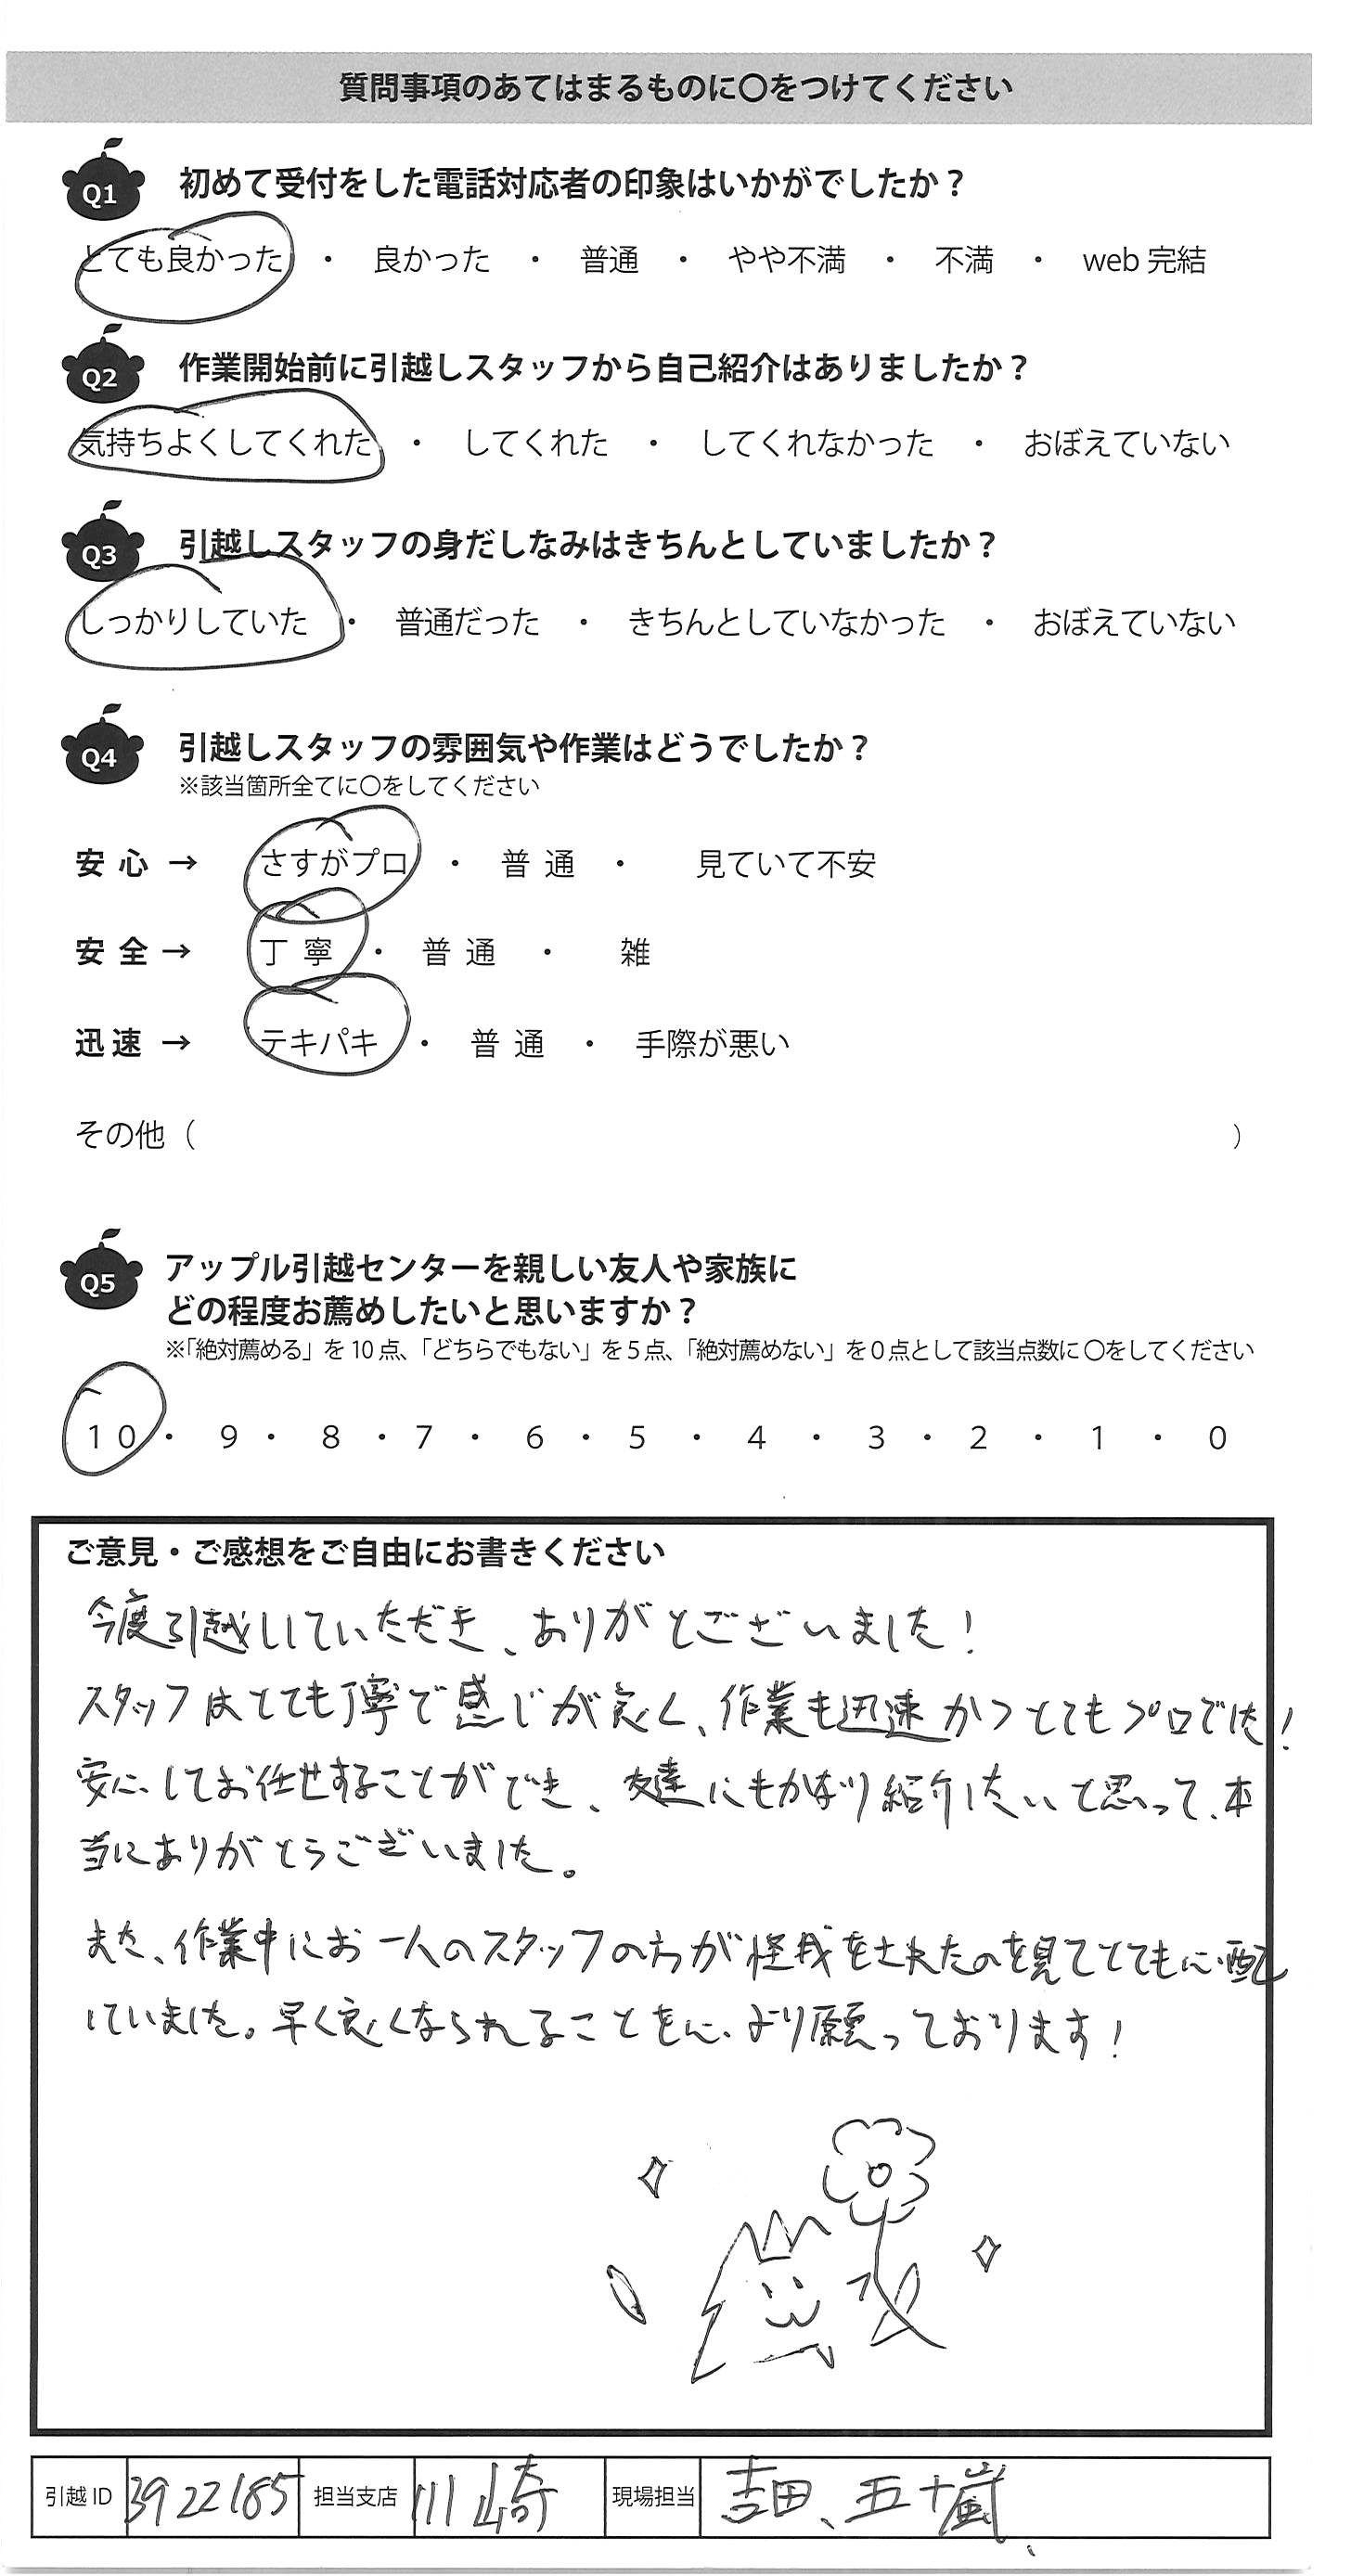 質問事項のあてはまるものに〇をつけてください
Q1 初めて受付をした電話対応者の印象はいかがでしたか？
とても良かった ・ 良かった ・ 普通 ・ やや不満 ・ 不満 ・ web 完結
Q2 作業開始前に引越しスタッフから自己紹介はありましたか？
気持ちよくしてくれた ・ してくれた ・ してくれなかった ・ おぼえていない
Q3 引越しスタッフの身だしなみはきちんとしていましたか？
しっかりしていた ・ 普通だった ・ きちんとしていなかった ・ おぼえていない
Q4 引越しスタッフの雰囲気や作業はどうでしたか？
※該当箇所全てに〇をしてください
安心 → さすがプロ ・ 普通 ・ 見ていて不安
安全 → 丁寧 ・ 普通 ・ 雑
迅速 → テキパキ ・ 普通 ・ 手際が悪い
その他（ ）
Q5 アップル引越センターを親しい友人や家族に
どの程度お薦めしたいと思いますか？
※「絶対薦める」を 10 点、「どちらでもない」を 5 点、「絶対薦めない」を 0 点として該当点数に 〇をしてください
10 ・ 9 ・ 8 ・ 7 ・ 6 ・ 5 ・ 4 ・ 3 ・ 2 ・ 1 ・ 0
ご意見・ご感想をご自由にお書きください
今度引越ししていただき、ありがとございました！
スタッフはとても丁寧で感じが良く、作業も迅速かつとてもプロでした！
安心してお任せすることができ、友達にもかなり紹介したいと思って、本
当にありがとうございました。
また、作業中にお一人のスタッフの方が怪我をされたのを見てとても心配
していました。早く良くなられることを心より願っております！
引越 ID 3922185 担当支店 川崎 現場担当 吉田、五十嵐